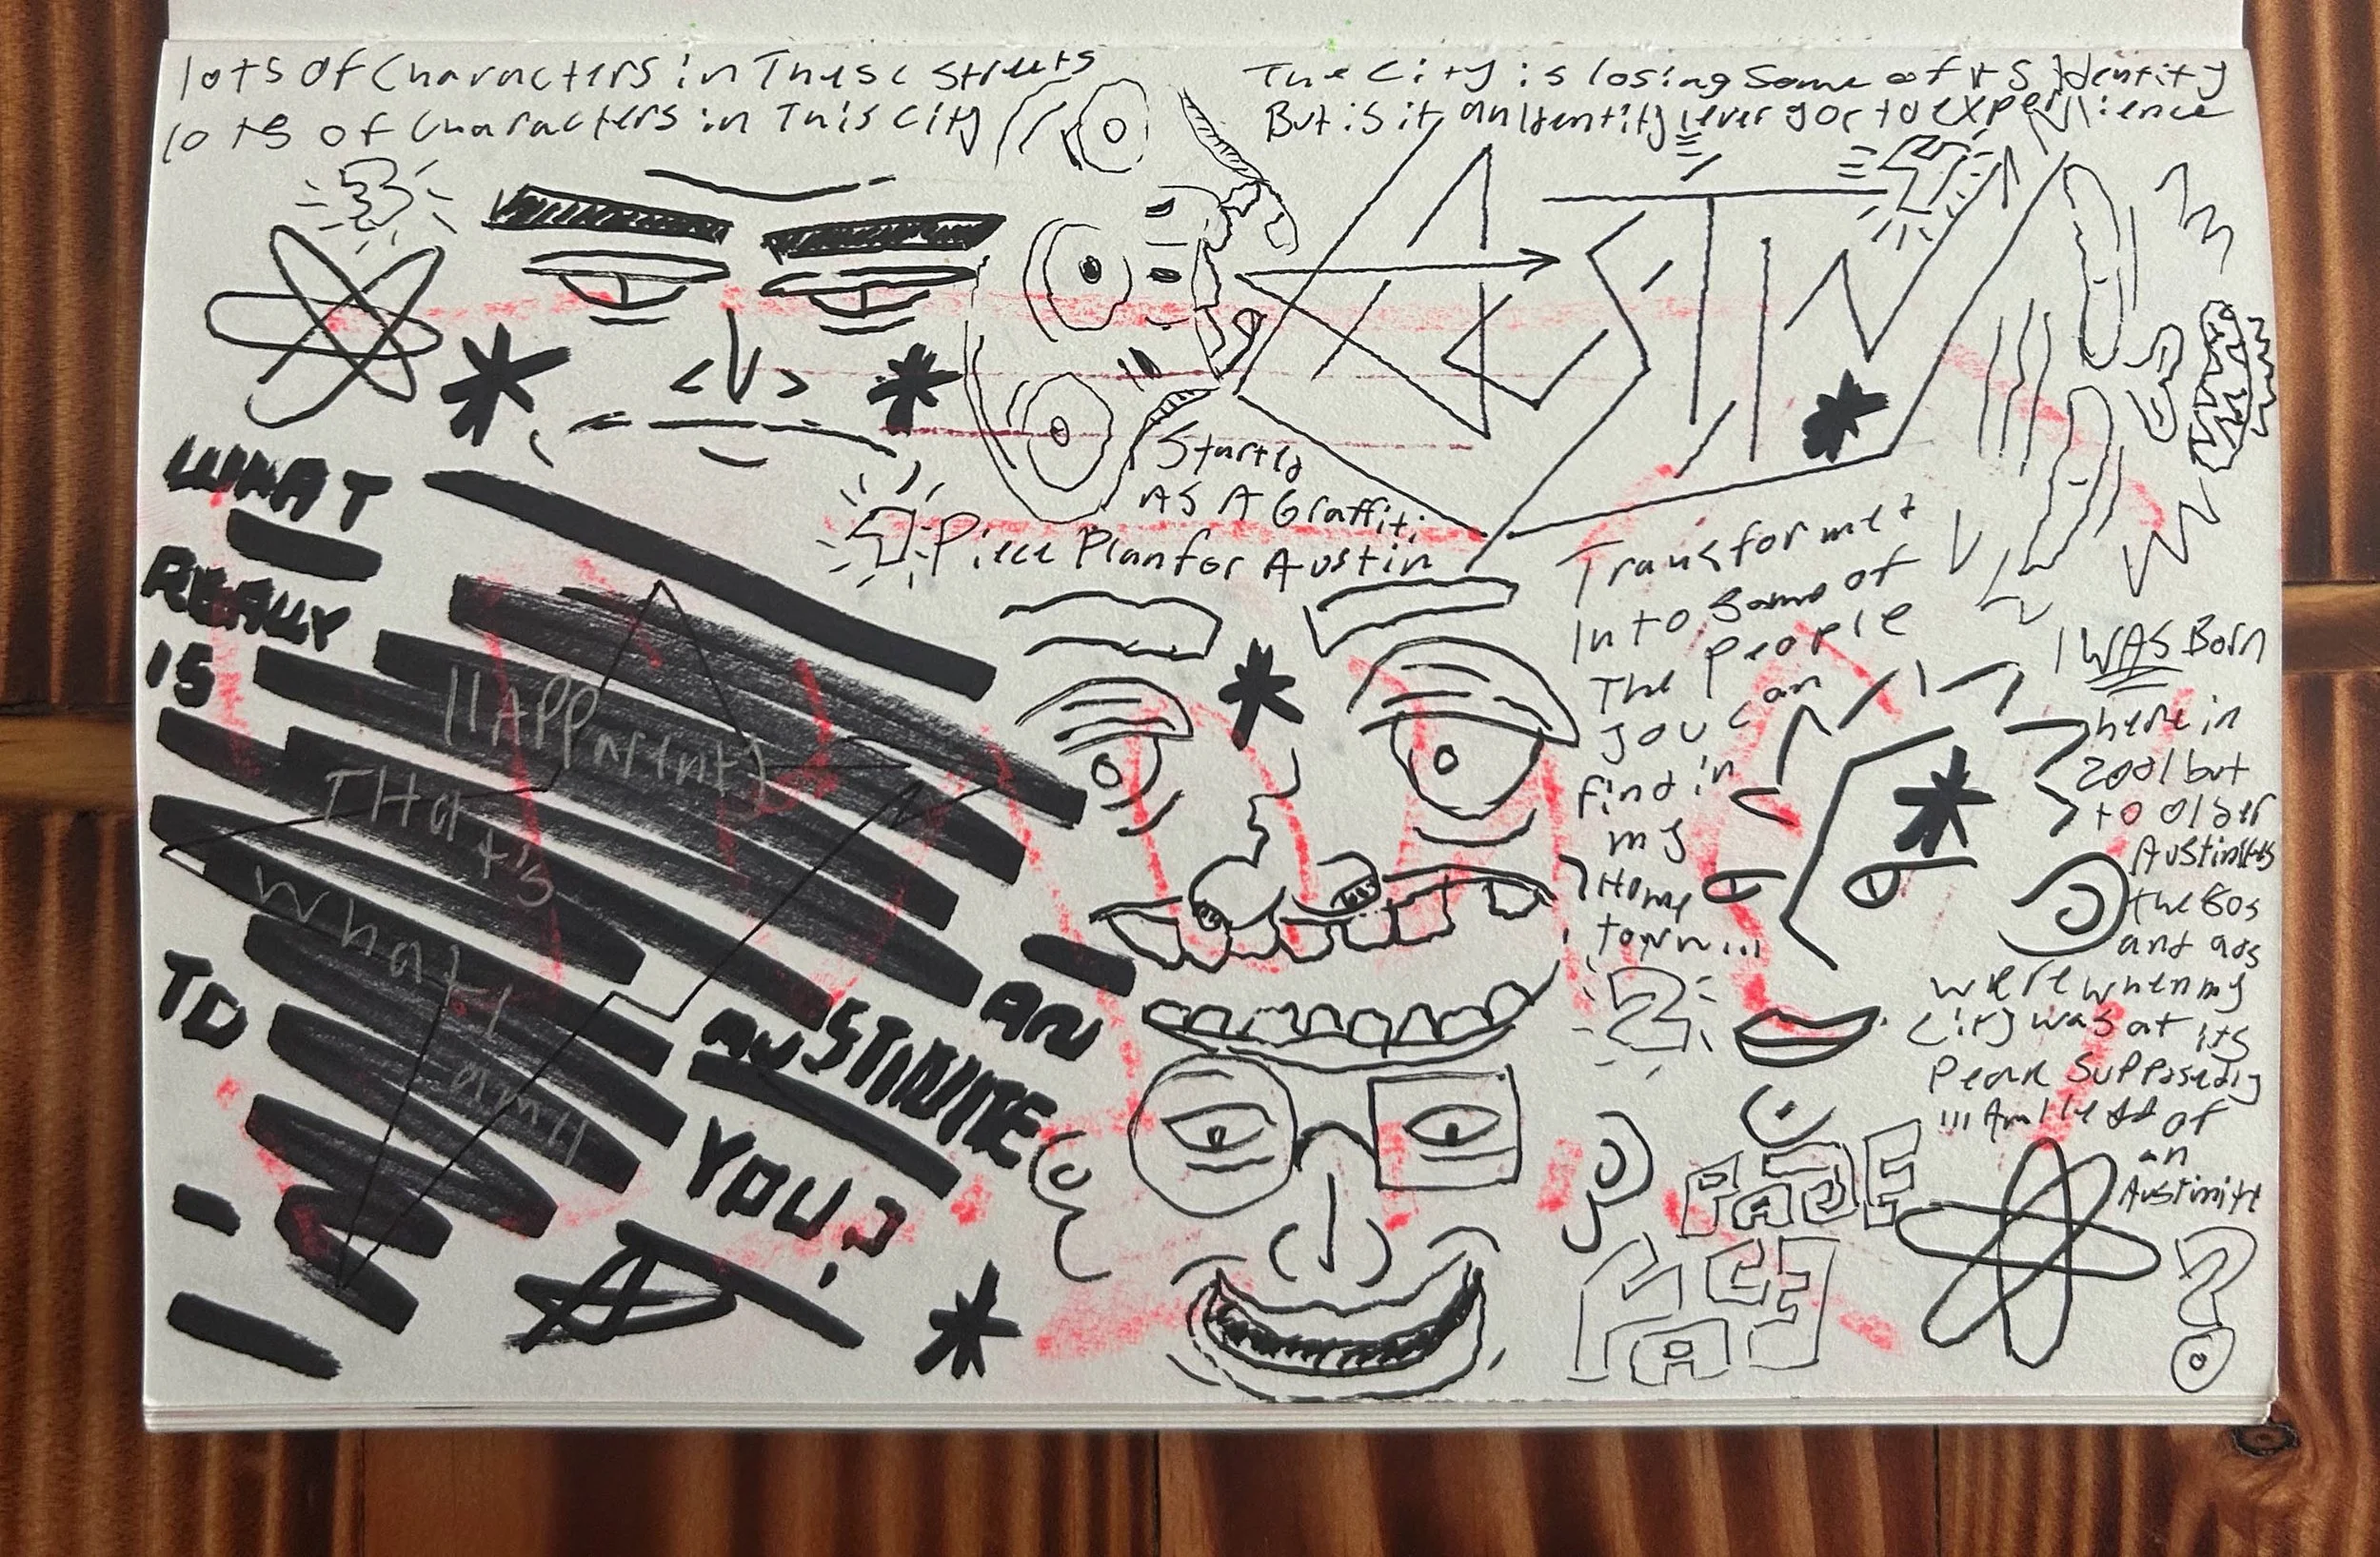 lots of Characters in These Streets
lots of Characters in This City
The City is losing Some of its Identity
But is it an Identity I ever got to experience
3
4
AUSTIN
1
Started
As A Graffiti
Piece Plan for Austin
Transformed
Into Some of
The People
you can
find in
my
Home
town...
2
I WAS Born
here in
2001 but
to older
Austinites
the 80s
and 90s
were when my
City was at its
Peak Supposedly
... Am I less of
an
Austinite
?
WHAT
REALLY
IS
"Apparently
THat's
what I
am"
TO
AN
AUSTINITE
YOU?
PAGE
FACE